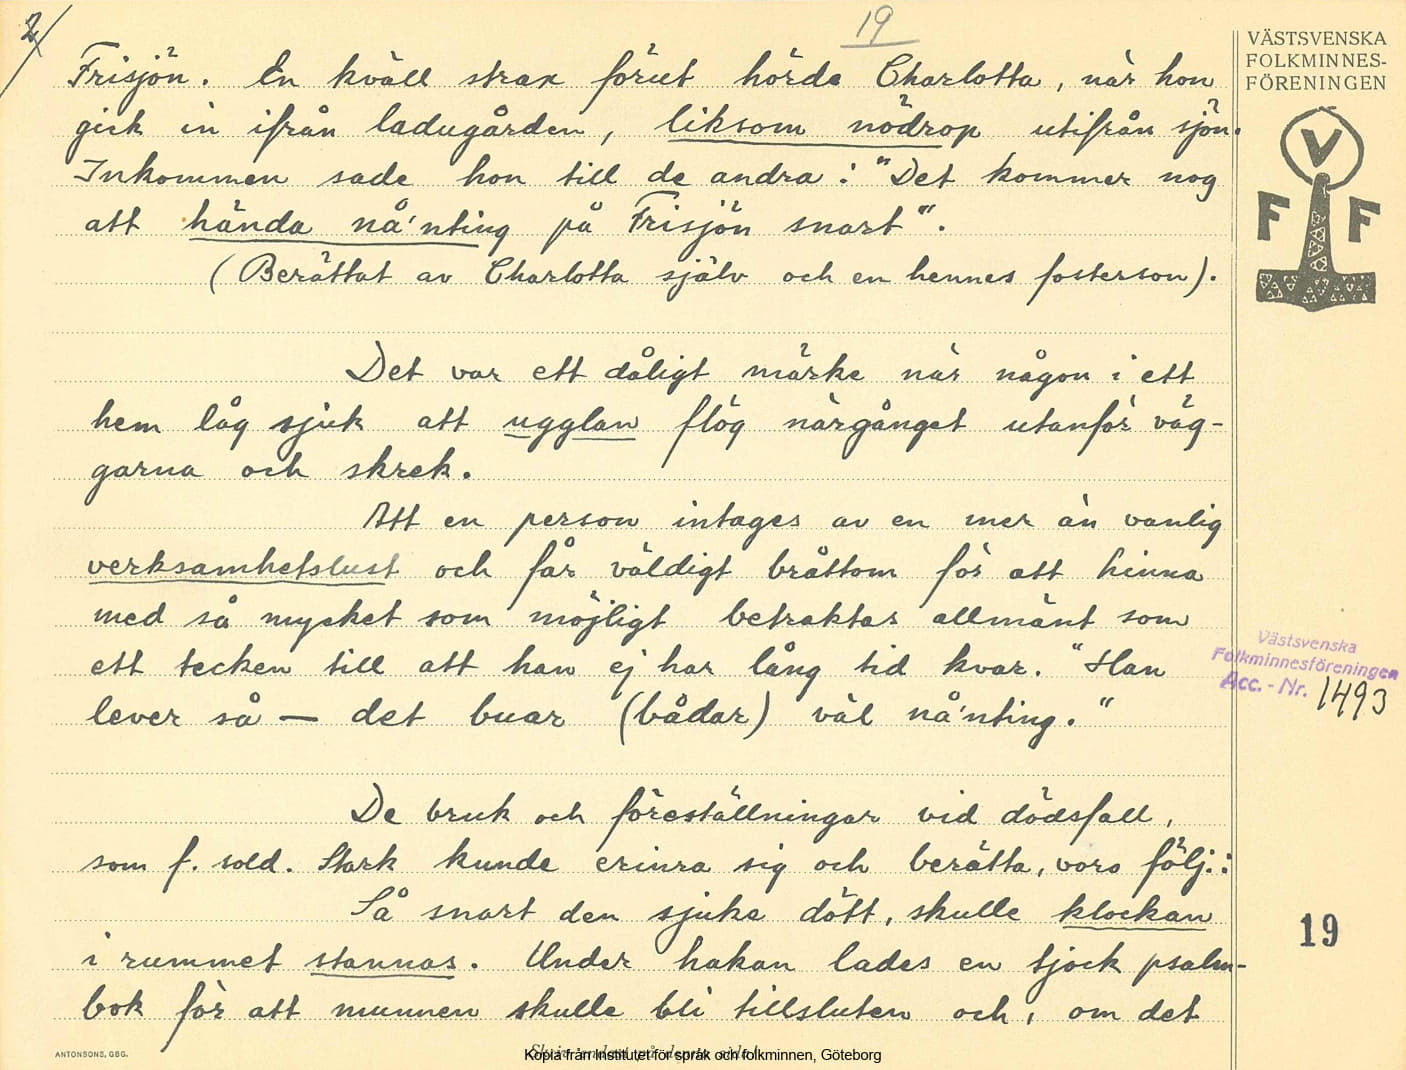 2/
19
Frisjön. En kväll strax förut hörde Charlotta, när hon
gick in ifrån ladugården, liksom nödrop utifrån sjön.
Inkommen sade hon till de andra: "Det kommer nog
att hända nå'nting på Frisjön snart".
(Berättat av Charlotta själv och en hennes fosterson).
Det var ett dåligt märke när någon i ett
hem låg sjuk att ugglan flög närgånget utanför väg-
garna och skrek.
Att en person intages av en mer än vanlig
verksamhetslust och får väldigt bråttom för att hinna
med så mycket som möjligt betraktas allmänt som
ett tecken till att han ej har lång tid kvar. "Han
lever så — det buar (bådar) väl nå'nting."
De bruk och föreställningar vid dödsfall,
som f. sold. Stark kunde erinra sig och berätta, voro följ.:
Så snart den sjuke dött, skulle klockan
i rummet stannas. Under hakan lades en tjock psalm-
bok för att munnen skulle bli tillsluten och, om det
VÄSTSVENSKA
FOLKMINNES-
FÖRENINGEN
V
F F
Västsvenska
Folkminnesföreningen
Acc.-Nr. 1493
19
ANTONSONS, GBG.
Kopia från Institutet för språk och folkminnen, Göteborg